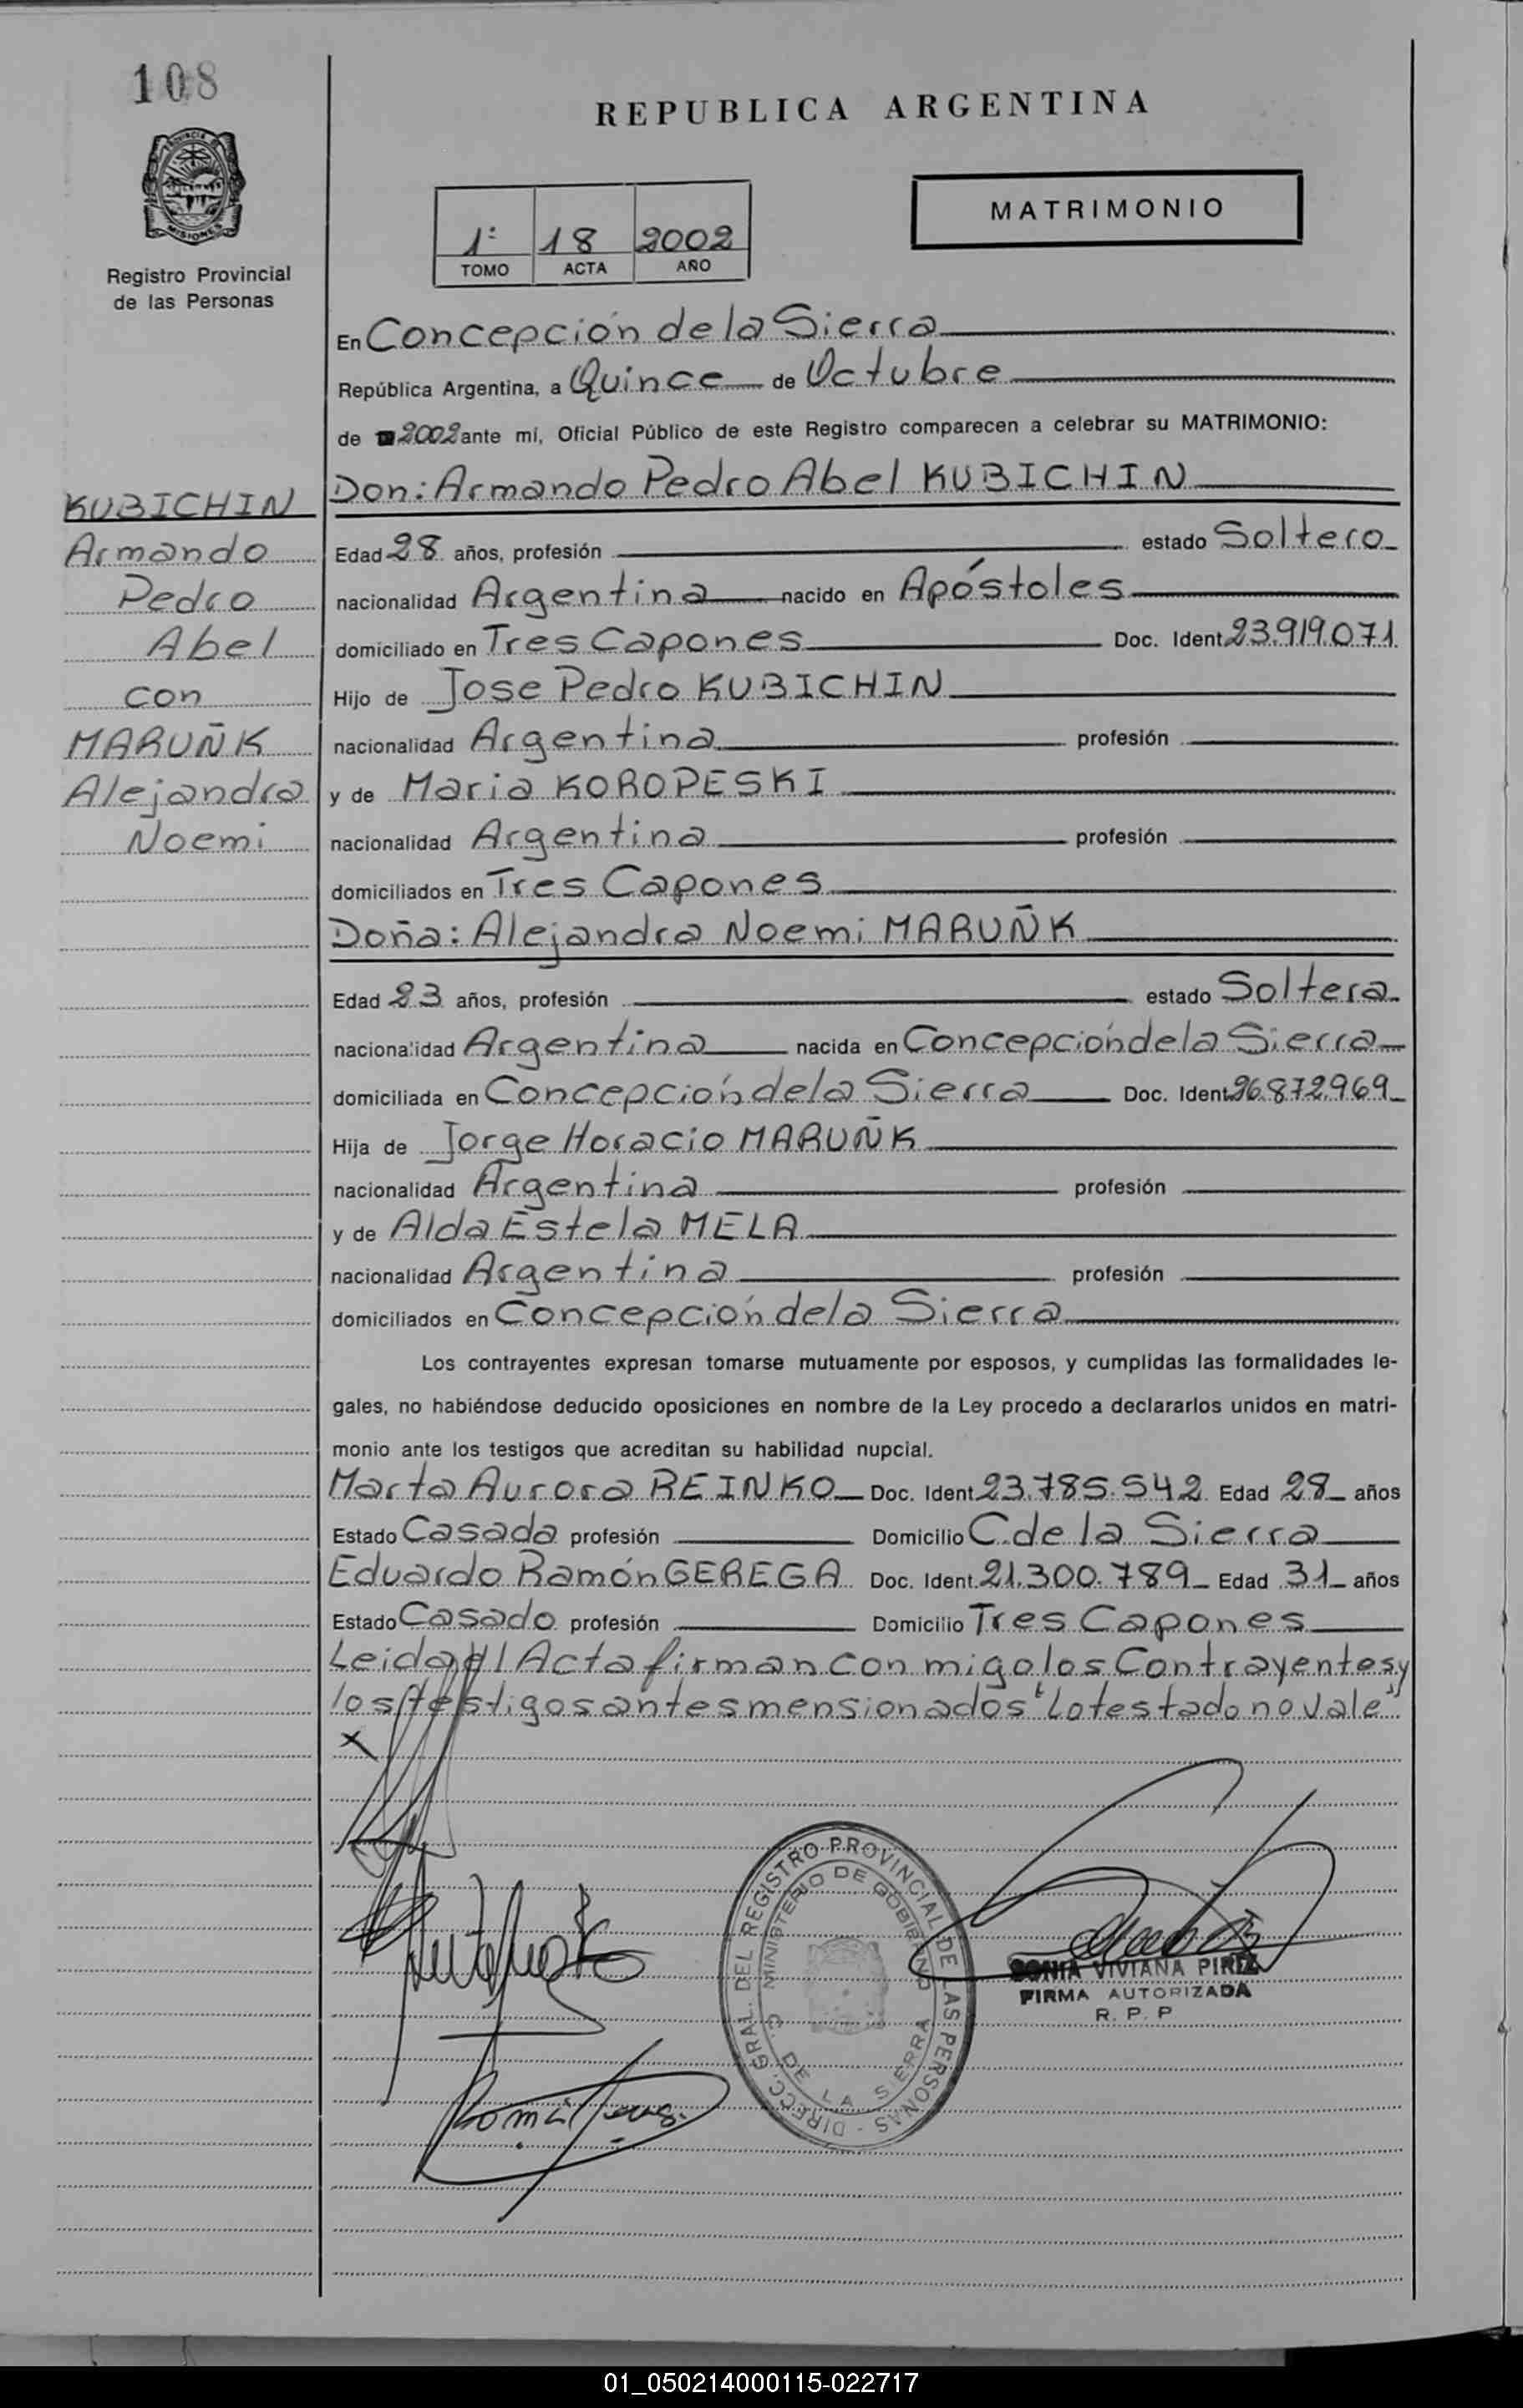 108
REPUBLICA ARGENTINA
PROVINCIA
MISIONES
Registro Provincial
de las Personas
1º 18 2002
TOMO ACTA AÑO
MATRIMONIO
En Concepción de la Sierra
República Argentina, a Quince de Octubre
de 2002 ante mí, Oficial Público de este Registro comparecen a celebrar su MATRIMONIO:
KUBICHIN
Armando
Pedro
Abel
con
MARUÑK
Alejandra
Noemi
Don: Armando Pedro Abel KUBICHIN
Edad 28 años, profesión estado Soltero
nacionalidad Argentina nacido en Apóstoles
domiciliado en Tres Capones Doc. Ident. 23.919.071
Hijo de Jose Pedro KUBICHIN
nacionalidad Argentina profesión
y de Maria KOROPESKI
nacionalidad Argentina profesión
domiciliados en Tres Capones
Doña: Alejandra Noemi MARUÑK
Edad 23 años, profesión estado Soltera
nacionalidad Argentina nacida en Concepción de la Sierra
domiciliada en Concepción de la Sierra Doc. Ident. 26.872.969
Hija de Jorge Horacio MARUÑK
nacionalidad Argentina profesión
y de Alda Estela MELA
nacionalidad Argentina profesión
domiciliados en Concepción de la Sierra
Los contrayentes expresan tomarse mutuamente por esposos, y cumplidas las formalidades le-
gales, no habiéndose deducido oposiciones en nombre de la Ley procedo a declararlos unidos en matri-
monio ante los testigos que acreditan su habilidad nupcial.
Marta Aurora REINKO Doc. Ident. 23.785.542 Edad 28 años
Estado Casada profesión Domicilio C. de la Sierra
Eduardo Ramón GEREGA Doc. Ident. 21.300.789 Edad 31 años
Estado Casado profesión Domicilio Tres Capones
Leida el Acta firman con migo los Contrayentes y
los testigos antes mensionados "Lo testado no vale"
DIRECC. GRAL. DEL REGISTRO PROVINCIAL DE LAS PERSONAS
MINISTERIO DE GOBIERNO
C. DE LA SIERRA
SONIA VIVIANA PIRIZ
FIRMA AUTORIZADA
R. P. P
01_050214000115-022717